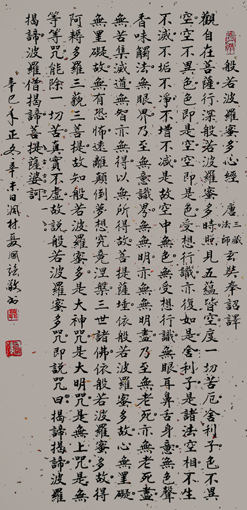 般若波羅蜜多心經 唐三藏法師玄奘奉詔譯
觀自在菩薩行深般若波羅蜜多時照見五蘊皆空度一切苦厄舍利子色不異
空空不異色色即是空空即是色受想行識亦復如是舍利子是諸法空相不生
不滅不垢不淨不增不減是故空中無色無受想行識無眼耳鼻舌身意無色聲
香味觸法無眼界乃至無意識界無無明亦無無明盡乃至無老死亦無老死盡
無苦集滅道無智亦無得以無所得故菩提薩埵依般若波羅蜜多故心無罣礙
無罣礙故無有恐怖遠離顛倒夢想究竟涅槃三世諸佛依般若波羅蜜多故得
阿耨多羅三藐三菩提故知般若波羅蜜多是大神咒是大明咒是無上咒是無
等等咒能除一切苦真實不虛故說般若波羅蜜多咒即說咒曰揭諦揭諦波羅
揭諦波羅僧揭諦菩提薩婆訶
辛巳年正辛未日林國敬書